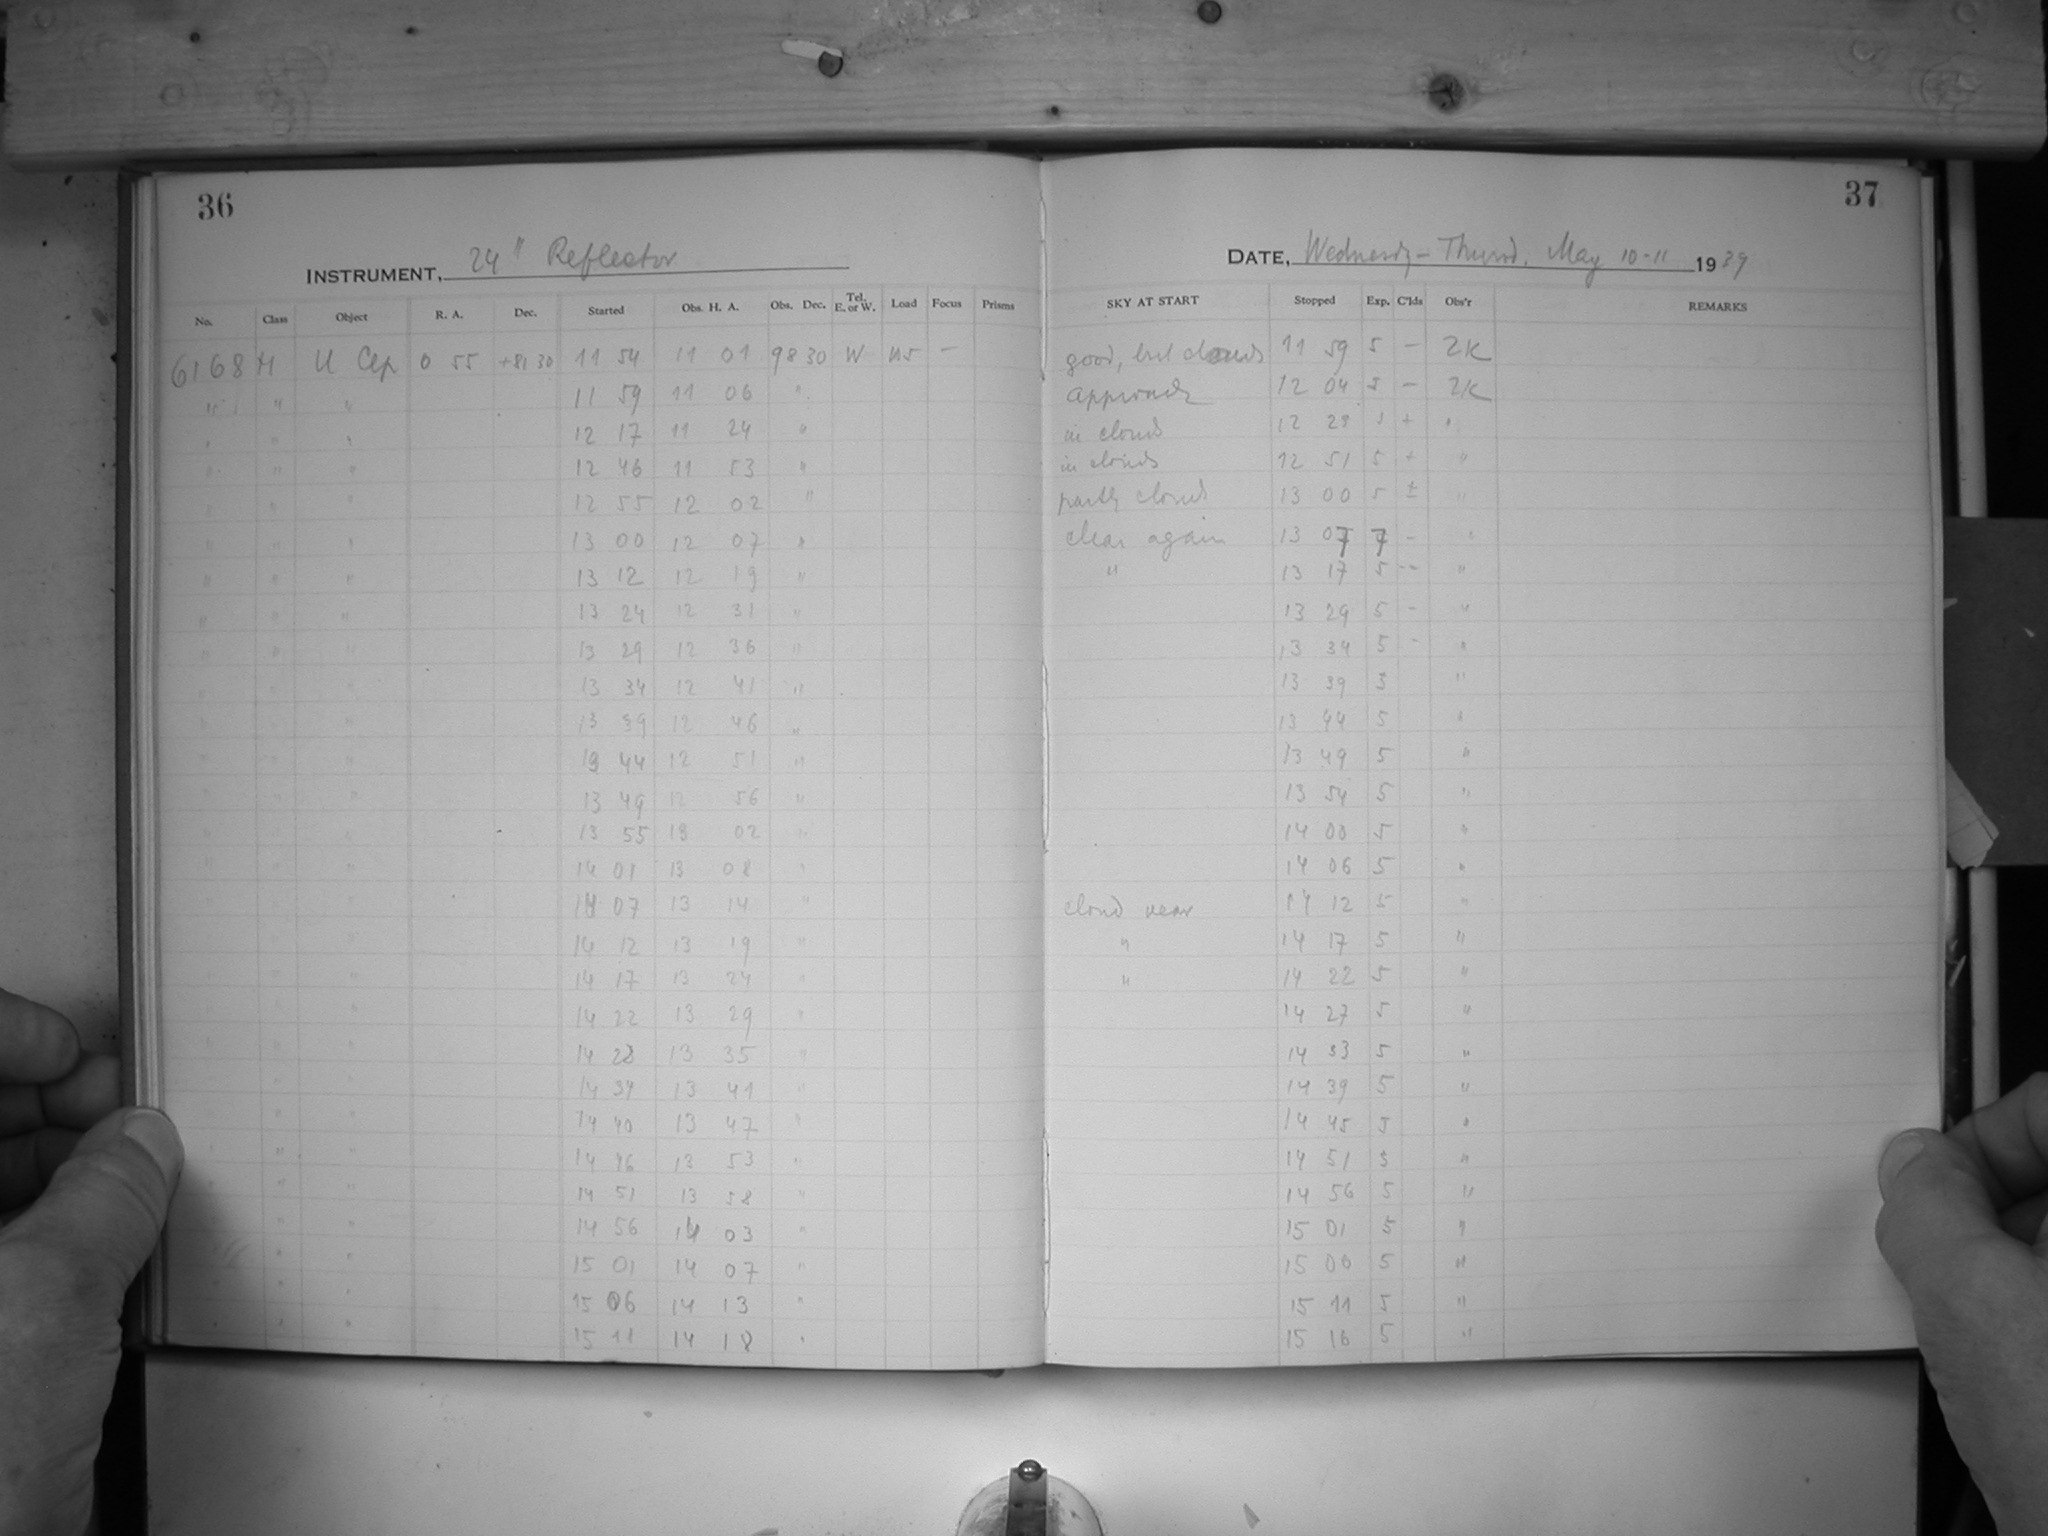 36
INSTRUMENT, 24" Reflector
No. Class Object R. A. Dec. Started Obs. H. A. Obs. Dec. Tel. E. or W. Load Focus Prisms
6168 H U Cep 0 55 +81 30 11 54 11 01 98 30 W 115 -
" " " 11 59 11 06 "
" " " 12 17 11 24 "
" " " 12 46 11 53 "
" " " 12 55 12 02 "
" " " 13 00 12 07 "
" " " 13 12 12 19 "
" " " 13 24 12 31 "
" " " 13 29 12 36 "
" " " 13 34 12 41 "
" " " 13 39 12 46 "
" " " 13 44 12 51 "
" " " 13 49 12 56 "
" " " 13 55 13 02 "
" " " 14 01 13 08 "
" " " 14 07 13 14 "
" " " 14 12 13 19 "
" " " 14 17 13 24 "
" " " 14 22 13 29 "
" " " 14 28 13 35 "
" " " 14 34 13 41 "
" " " 14 40 13 47 "
" " " 14 46 13 53 "
" " " 14 51 13 58 "
" " " 14 56 14 03 "
" " " 15 01 14 07 "
" " " 15 06 14 13 "
" " " 15 11 14 18 "
37
DATE, Wednesdy - Thursd. May 10-11 1939
SKY AT START Stopped Exp. C'lds Obs'r REMARKS
good, but clouds 11 59 5 - ZK
approach 12 04 5 - ZK
in clouds 12 + "
in clouds 12 51 5 + "
partly clouds 13 00 5 ± "
clear again 13 07 7 - "
" 13 17 5 -- "
13 29 5 - "
13 34 5 - "
13 39 5 "
13 44 5 "
13 49 5 "
13 54 5 "
14 00 5 "
14 06 5 "
cloud near 14 12 5 "
" 14 17 5 "
" 14 22 5 "
14 27 5 "
14 33 5 "
14 39 5 "
14 45 5 "
14 51 5 "
14 56 5 "
15 01 5 "
15 06 5 "
15 11 5 "
15 16 5 "